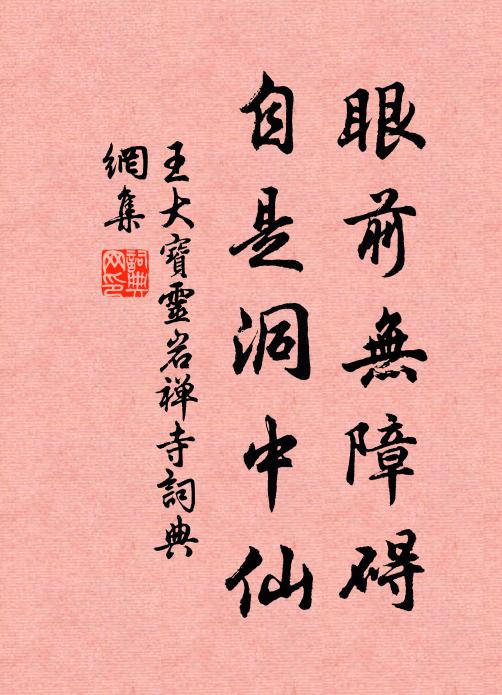 眼前無障碍
自是洞中仙
王大寶靈岩禅寺詞典
網集
詞典
网印